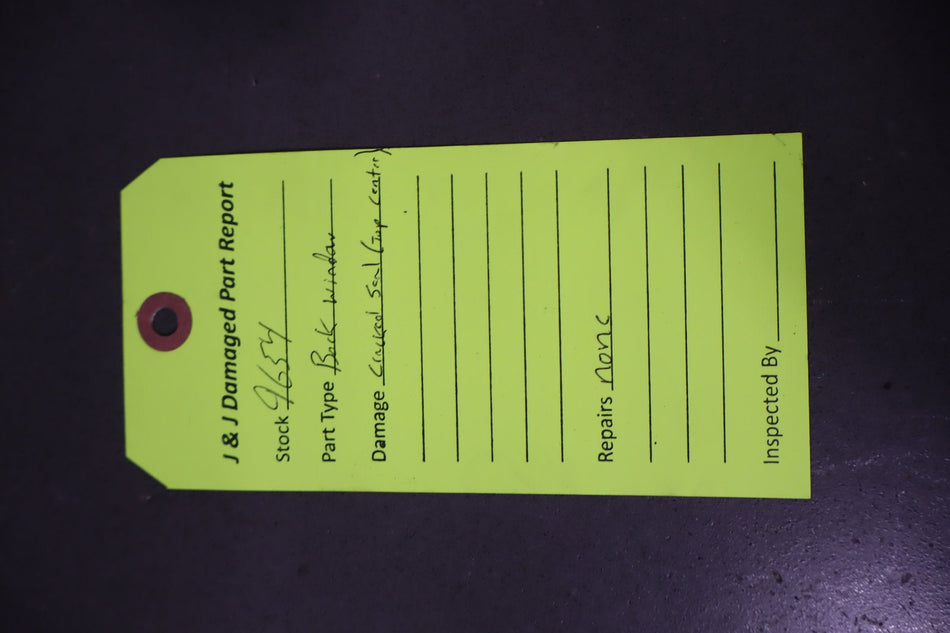 J & J Damaged Part Report
Stock 9654
Part Type Back Window
Damage Cracked Seal (Top Center)
Repairs none
Inspected By